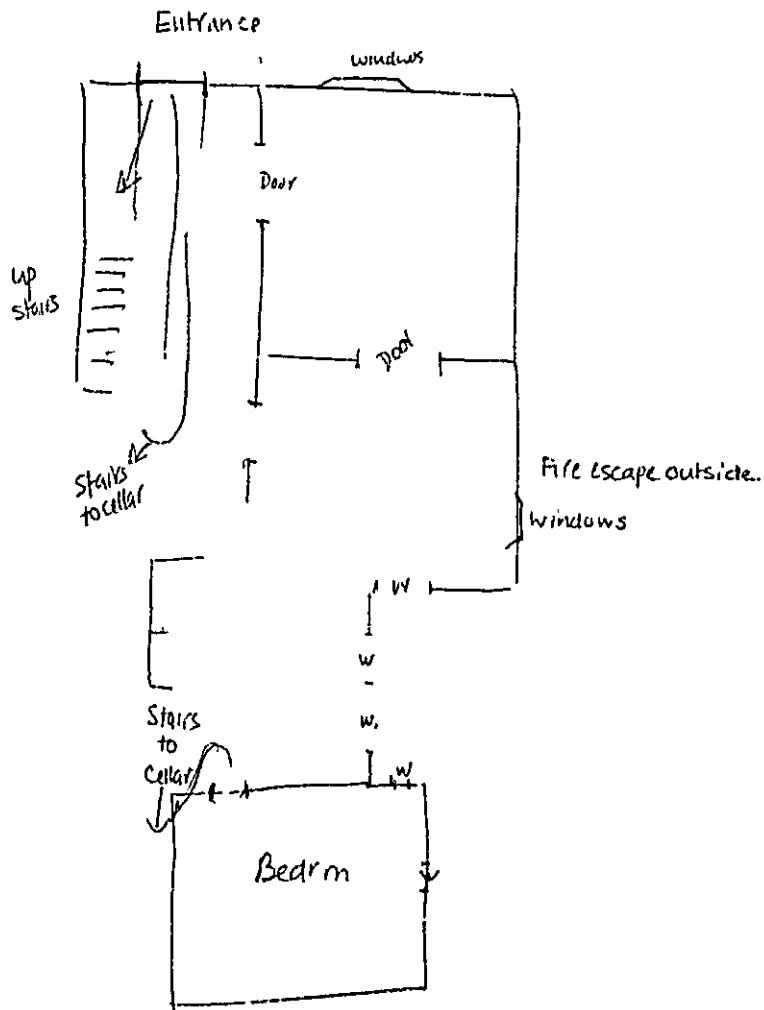 Entrance
windows
Door
up
stairs
Door
Stairs
to cellar
Fire escape outside..
windows
W
W
W.
Stairs
to
Cellar
W
Bedrm